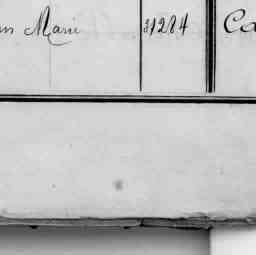 Marie 31284 Ca